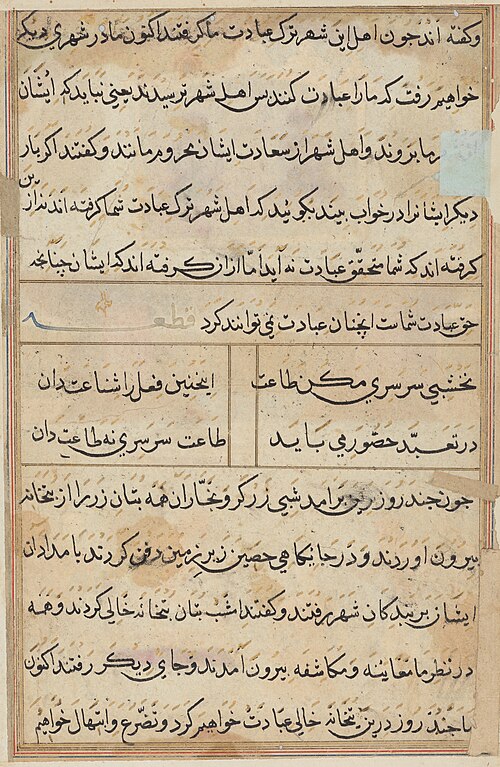 وکفته اند جون اهل این شهر ترک عبادت ما کرفتند اکنون ما در شهری دیکر
خواهیم رفت که ما را عبادت کنند بس اهل شهر ترسیدند یعنی نباید که ایشان
ما بروند و اهل شهر از سعادت ایشان محروم مانند و کفتند اکر بار
دیکر ایشانرا در خواب بینند بکوئید که اهل شهر ترک عبادت شما کرفته اند نه از
کرفته اند که شما مستحقّ عبادت نه اید امّا ازان کرفته اند که ایشان چنانجه
حق عبادت شماست انچنان عبادت نمی توانند کرد قطعه
نخشبی سرسری مکن طاعت اینچنین فعل را شناعت دان
در تعبّد حضور می باید طاعت سرسری نه طاعت دان
جون جند روز برامد شبی زرکر و نجّار ان همه بتان زر را از بتخانه
بیرون اوردند و در جایکاهی حصین زیر زمین دفن کردند بامدادان
ایشان بر بندکان شهر رفتند و کفتند امشب بتان بتخانه خالی کردند و همه
در نظر ما معاینه و مکاشفه بیرون امدند و جای دیکر رفتند اکنون
ما جند روز درین بتخانه خالی عبادت خواهیم کرد و تضرّع و ابتهال خواهیم